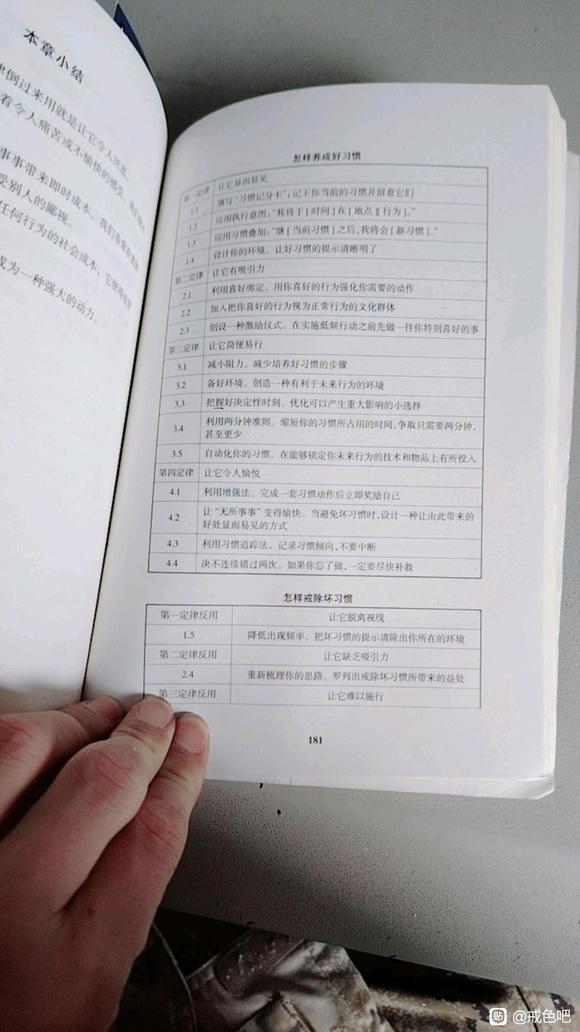 本章小结
倒过来用就是让它令人厌恶。
着令人痛苦或不愉快的感受，我们
事事带来即时成本。我们
受别人的鄙视。
任何行为的社会成本，它使得
成为一种强大的动力。
怎样养成好习惯
第一定律 让它显而易见
1.1 填写“习惯记分卡”；记下你当前的习惯并留意它们
1.2 应用执行意图：“我将于[时间]在[地点][行为]。”
1.3 应用习惯叠加：“继[当前习惯]之后，我将会[新习惯]。”
1.4 设计你的环境。让好习惯的提示清晰明了
第二定律 让它有吸引力
2.1 利用喜好绑定。用你喜好的行为强化你需要的动作
2.2 加入把你喜好的行为视为正常行为的文化群体
2.3 创设一种激励仪式。在实施低频行动之前先做一件你特别喜好的事
第三定律 让它简便易行
3.1 减小阻力。减少培养好习惯的步骤
3.2 备好环境。创造一种有利于未来行为的环境
3.3 把握好决定性时刻。优化可以产生重大影响的小选择
3.4 利用两分钟准则。缩短你的习惯所占用的时间，争取只需要两分钟，
甚至更少
3.5 自动化你的习惯。在能够锁定你未来行为的技术和物品上有所投入
第四定律 让它令人愉悦
4.1 利用增强法。完成一套习惯动作后立即奖励自己
4.2 让“无所事事”变得愉快。当避免坏习惯时，设计一种让由此带来的
好处显而易见的方式
4.3 利用习惯追踪法。记录习惯倾向，不要中断
4.4 决不连续错过两次。如果你忘了做，一定要尽快补救
怎样戒除坏习惯
第一定律反用 让它脱离视线
1.5 降低出现频率。把坏习惯的提示清除出你所在的环境
第二定律反用 让它缺乏吸引力
2.4 重新梳理你的思路。罗列出戒除坏习惯所带来的益处
第三定律反用 让它难以施行
181
贴 @戒色吧